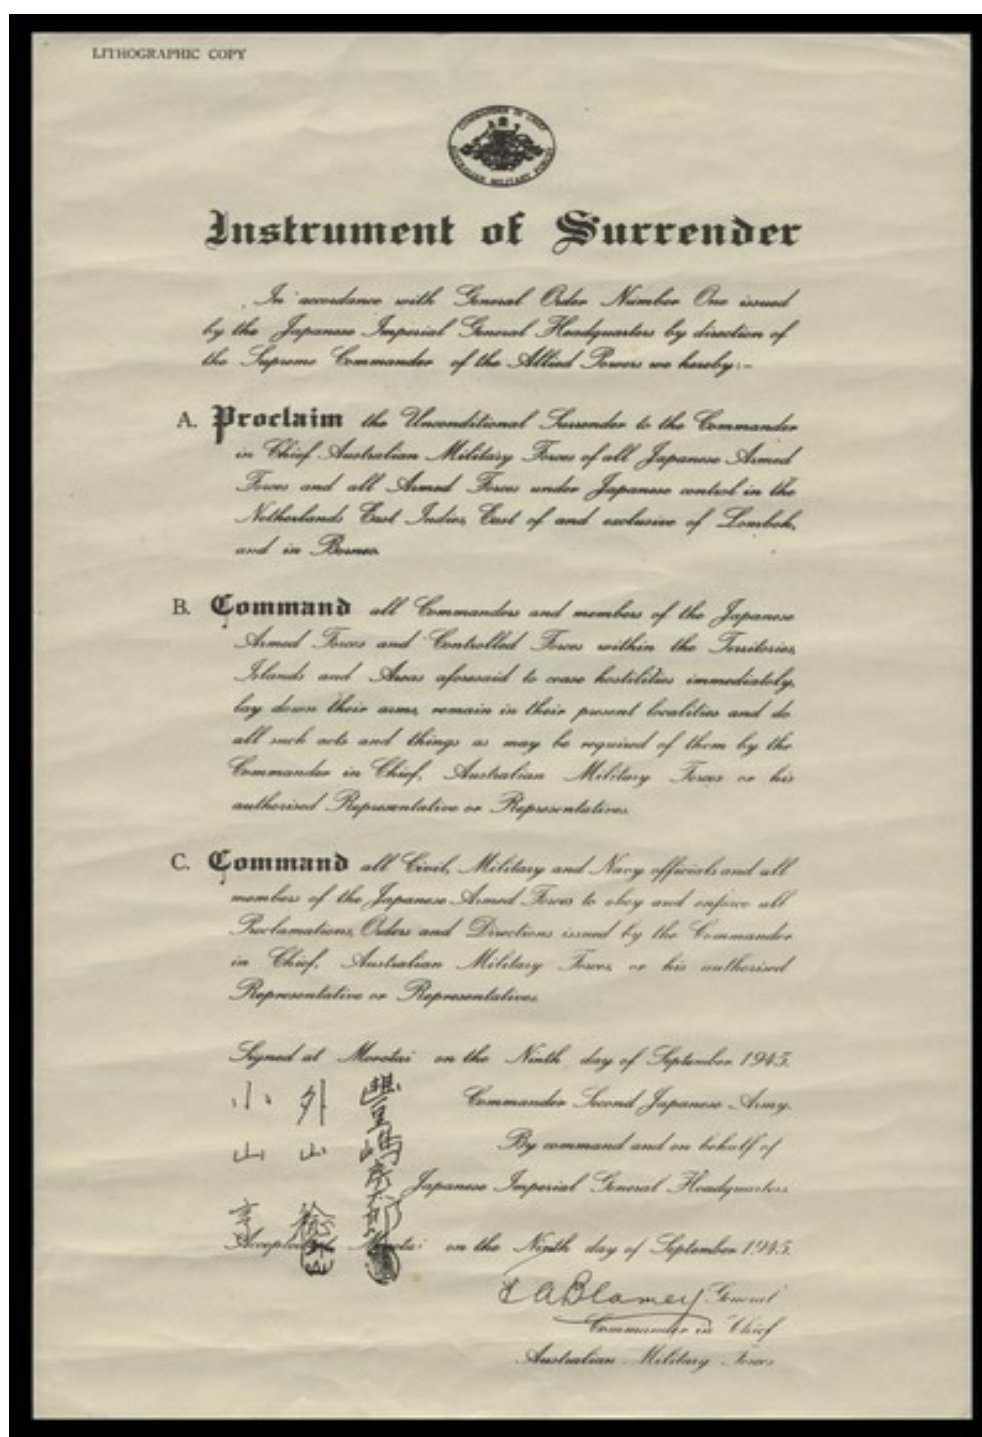 LITHOGRAPHIC COPY
COMMANDER IN CHIEF
AUSTRALIAN MILITARY FORCES
Instrument of Surrender
In accordance with General Order Number One issued
by the Japanese Imperial General Headquarters by direction of
the Supreme Commander of the Allied Powers we hereby:-
A. Proclaim the Unconditional Surrender to the Commander
in Chief Australian Military Forces of all Japanese Armed
Forces and all Armed Forces under Japanese control in the
Netherlands East Indies, East of and exclusive of Lombok,
and in Borneo.
B. Command all Commanders and members of the Japanese
Armed Forces and Controlled Forces within the Territories,
Islands and Areas aforesaid to cease hostilities immediately,
lay down their arms, remain in their present localities and do
all such acts and things as may be required of them by the
Commander in Chief, Australian Military Forces or his
authorised Representative or Representatives.
C. Command all Civil, Military and Navy officials and all
members of the Japanese Armed Forces to obey and enforce all
Proclamations, Orders and Directions issued by the Commander
in Chief, Australian Military Forces, or his authorised
Representative or Representatives.
Signed at Morotai on the Ninth day of September 1945.
豊嶋房太郎
外山
小山亨
Commander Second Japanese Army.
By command and on behalf of
Japanese Imperial General Headquarters
Accepted at Morotai on the Ninth day of September 1945.
T A Blamey General
Commander in Chief
Australian Military Forces